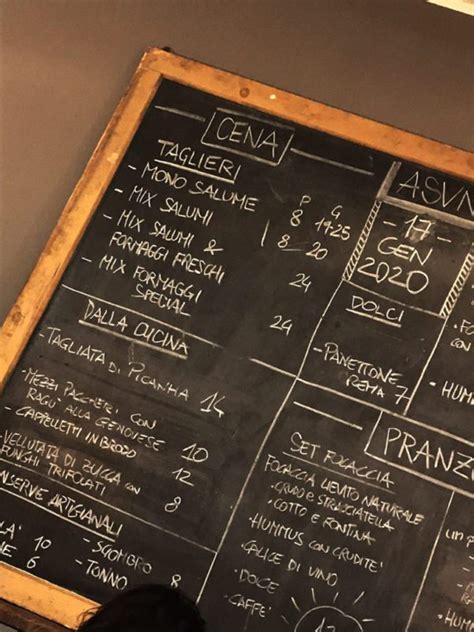 CENA
TAGLIERI
P G
- MONO SALUME 8 14-25
- MIX SALUMI 8 - 20
- MIX SALUMI &
FORMAGGI FRESCHI 24
- MIX FORMAGGI
SPECIAL 24
DALLA CUCINA
- TAGLIATA DI PICANHA 14
- MEZZI PACCHERI CON
RAGÙ ALLA GENOVESE 10
- CAPPELLETTI IN BRODO 12
VELLUTATA DI ZUCCA CON
FUNGHI TRIFOLATI 8
CONSERVE ARTIGIANALI
10
6
- SGOMBRO
- TONNO 8
ASVN
- 17 -
GEN
2020
DOLCI
- PANETTONE
7
HUM
PRANZ
SET FOCACCIA
FOCACCIA LIEVITO NATURALE
- CRUDO E STRACCIATELLA
- COTTO E FONTINA
- HUMMUS CON CRUDITÈ
- CALICE DI VINO
- DOLCE
- CAFFE'
12